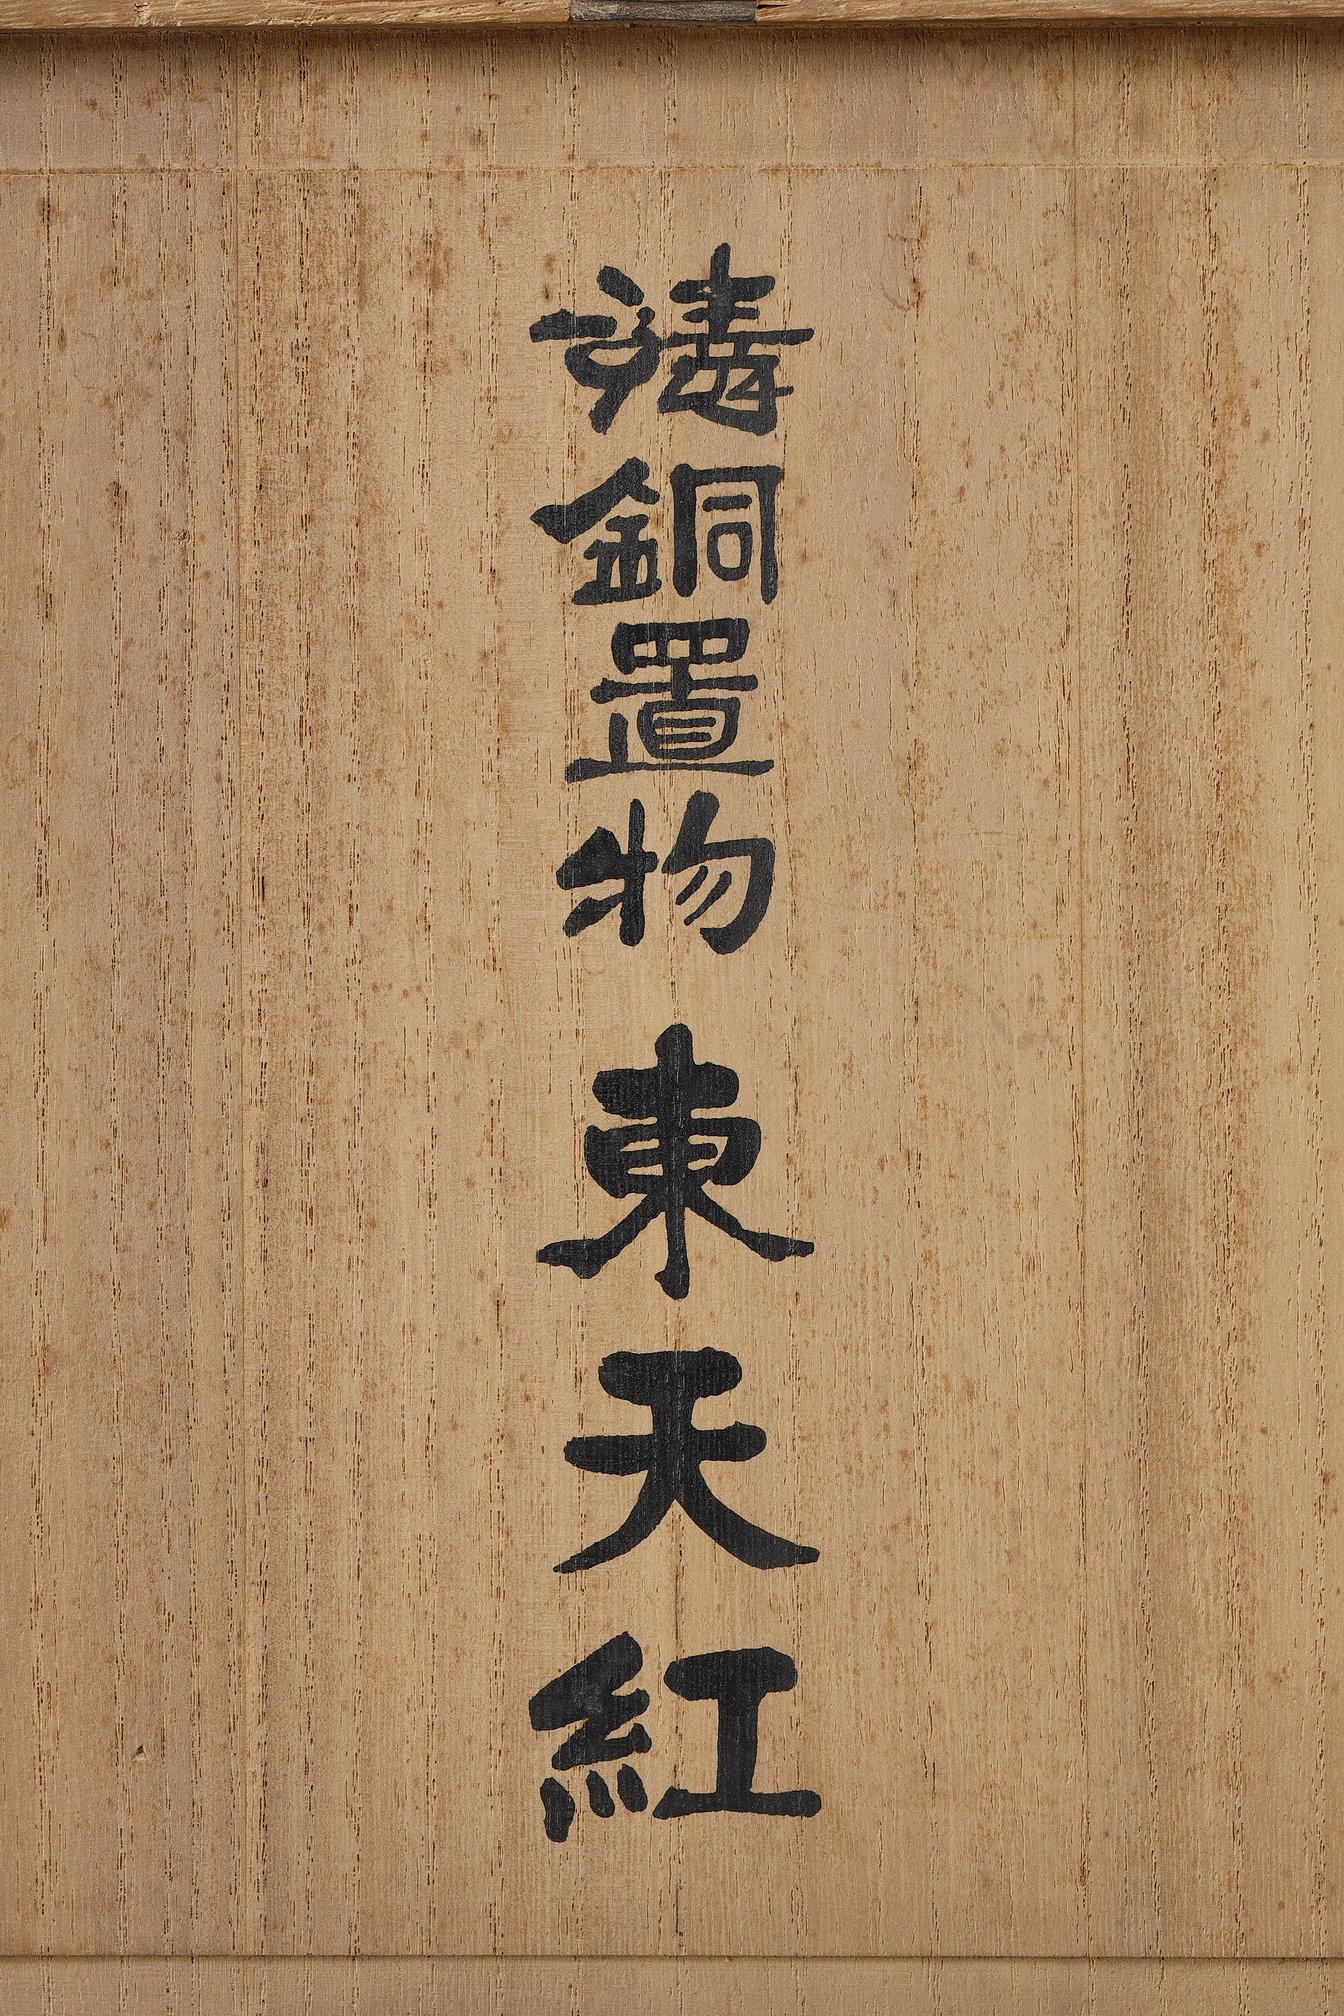 鋳銅置物 東天紅